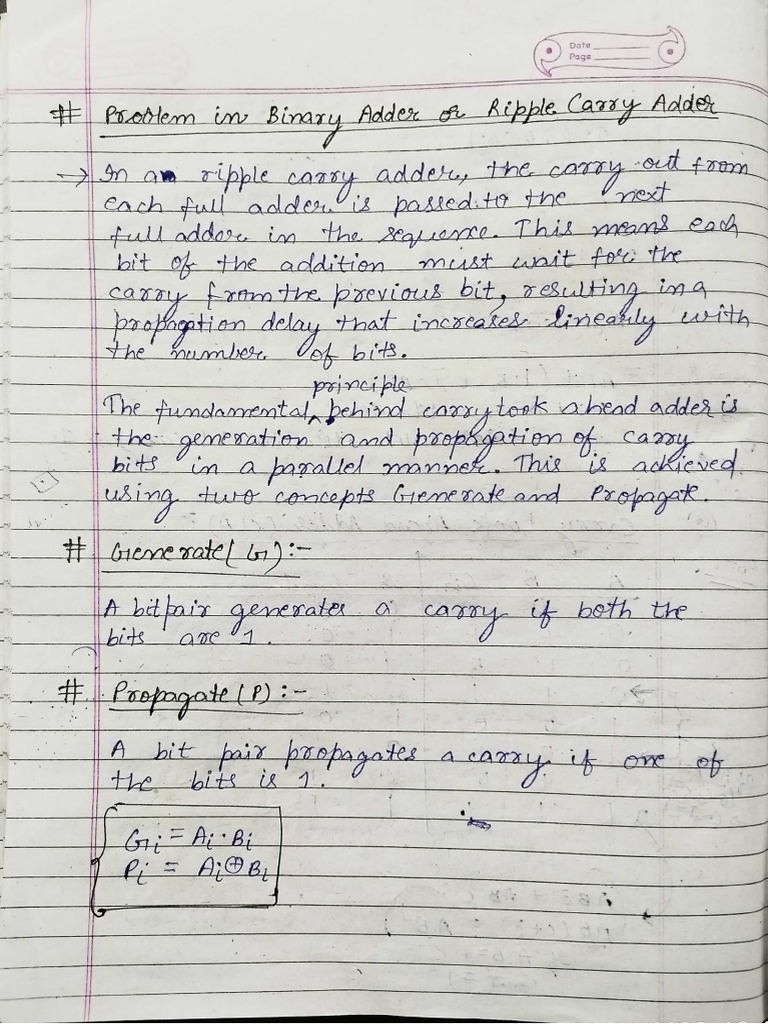 Date
Page
# Problem in Binary Adder or Ripple Carry Adder
→ In a ripple carry adder, the carry out from
each full adder is passed to the next
full adder in the sequence. This means each
bit of the addition must wait for the
carry from the previous bit, resulting in a
propagation delay that increases linearly with
the number of bits.
principle
The fundamental ^ behind carry look ahead adder is
the generation and propagation of carry
bits in a parallel manner. This is achieved
using two concepts Generate and Propagate.
# Generate (G) :-
A bit pair generates a carry if both the
bits are 1.
# Propagate (P) :-
A bit pair propagates a carry if one of
the bits is 1.
Gi = Ai · Bi
Pi = Ai ⊕ Bi